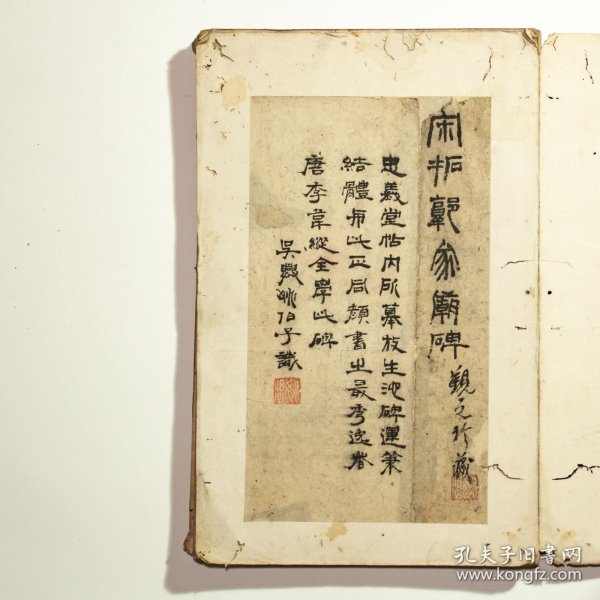 宋拓郭家庙碑
观之珍藏
忠義堂帖内所摹放生池碑運筆
結體與此正同顔書之最秀逸者
唐李韋縱全學此碑
吴 伯子識
孔夫子旧書网
www.kongfz.com